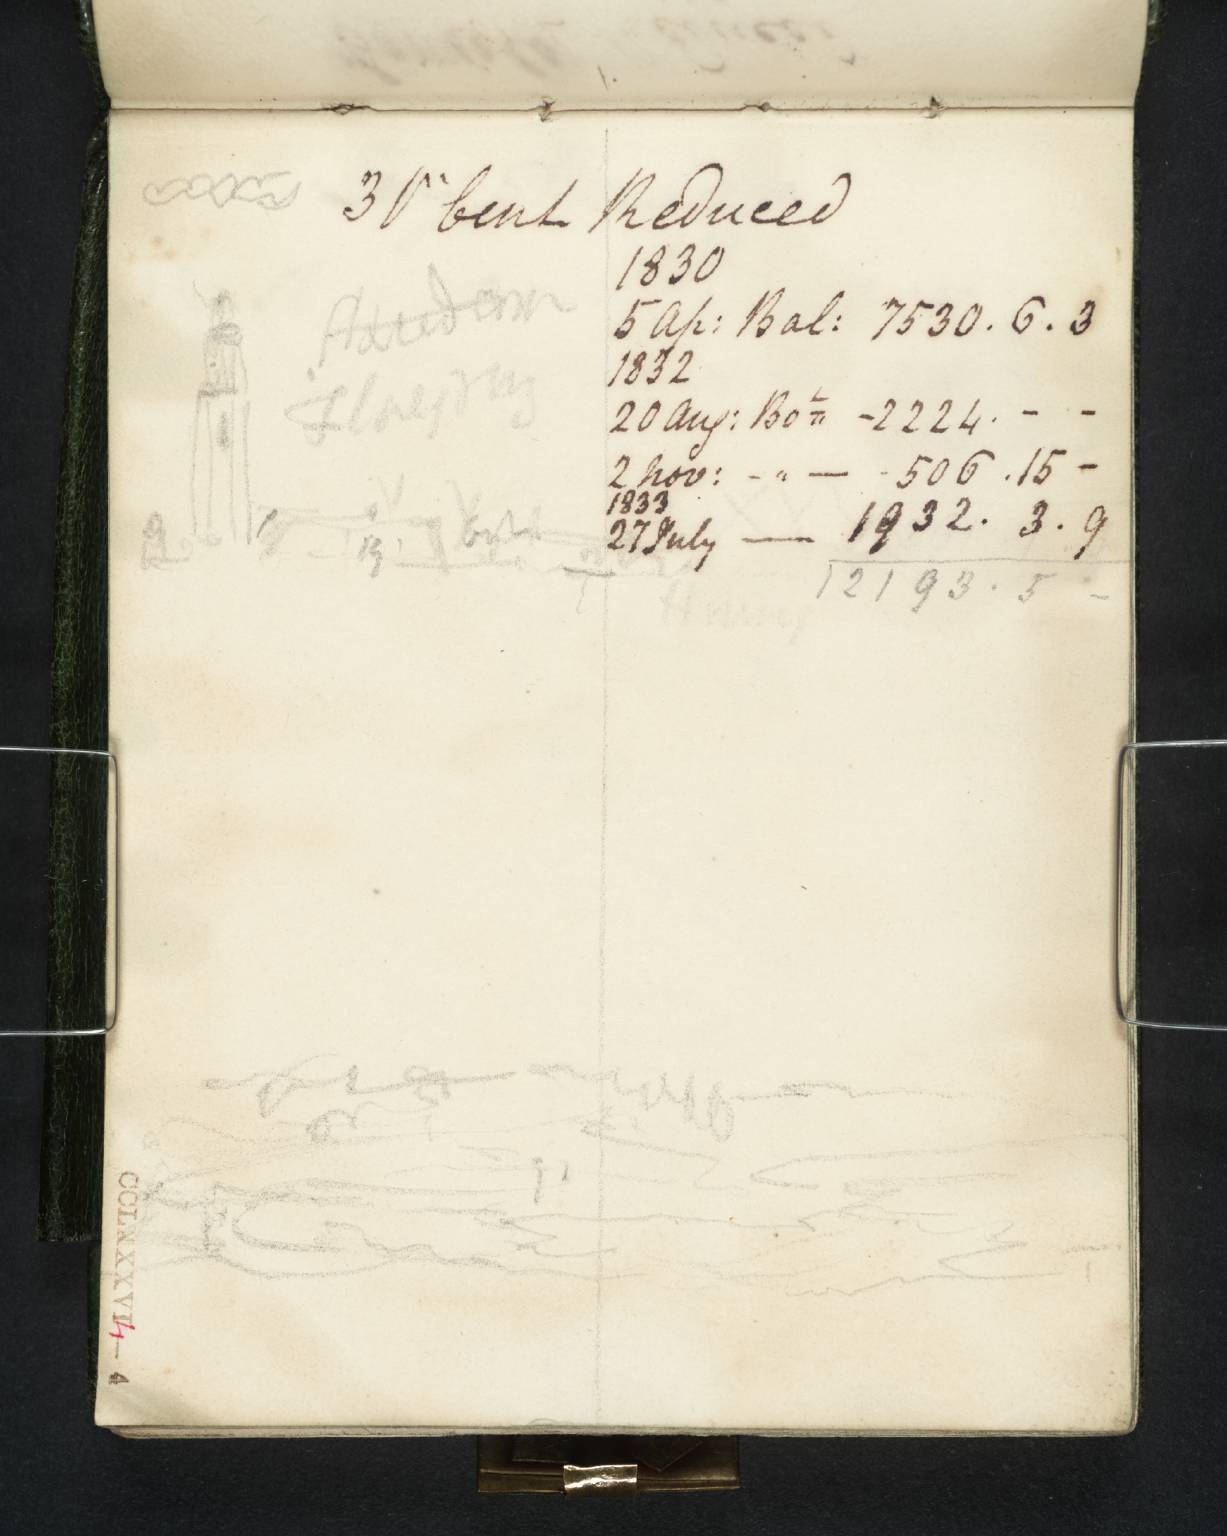 3 Pr Cent Reduced
1830
5 Ap: Bal: 7530. 6. 3
1832
20 Aug: Bot - 2224. - -
2 Nov: - " — - 506. 15 -
1833
27 July — 1932. 3. 9
12193. 5 -
CCLXXVI h— 4